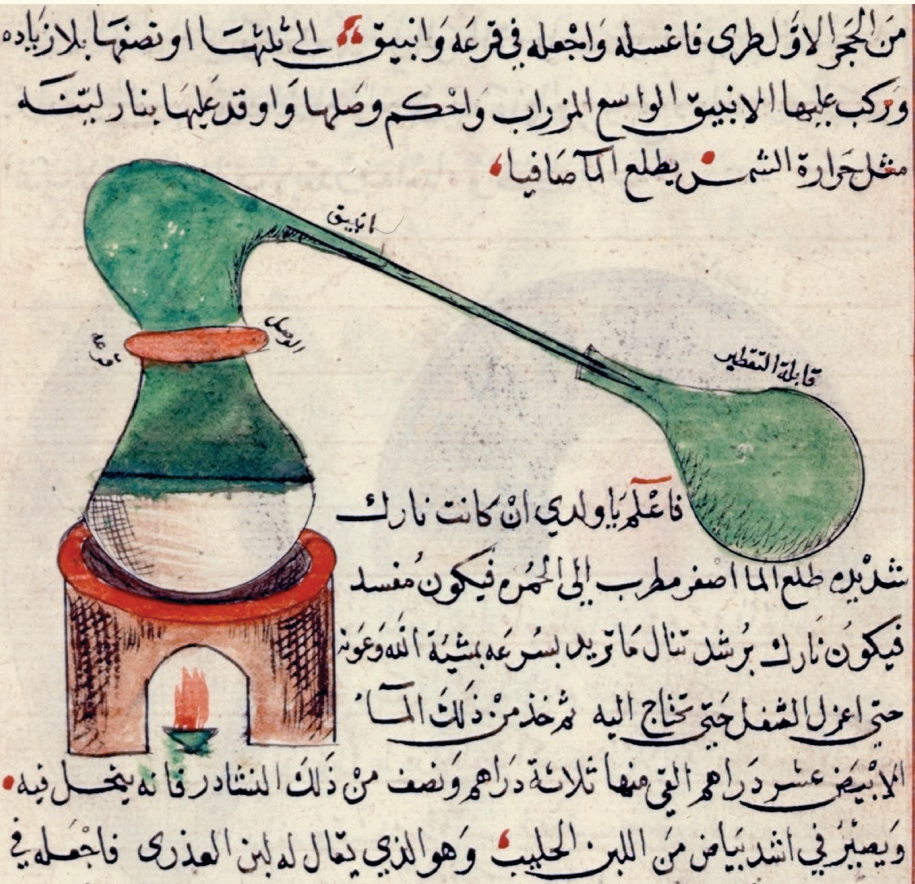 من الحجر الاول طرى فاغسله واجعله في قرعه وانبيق الى ثلثها او نصفها بلا زياده
وركب عليها الانبيق الواسع المزراب واحكم وصلها واوقد عليها بنار لينه
مثل حرارة الشمس يطلع المآ صافيا
انبيق
الوصل
قابلة التقطير
فاعلم يا ولدي ان كانت نارك
شديده طلع الما اصفر مطرب الى الحمره فيكون مفسد
فيكون نارك برشد تنال ما تريد بسرعه بمشية الله وعونه
حتى اعزل الثفل حتى تحتاج اليه ثم خذ من ذلك المآ
الابيض عشر دراهم القي منها ثلاثة دراهم ونصف من ذلك النشادر فانه ينحل فيه
ويصير في اشد بياض من اللبن الحليب وهو الذي يقال له لبن العذرى فاجعله في